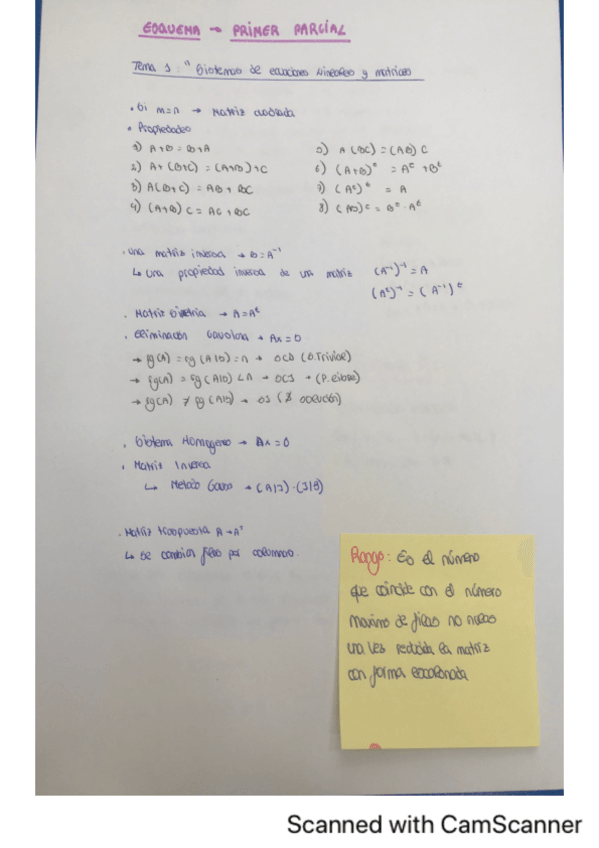 ESQUEMA → PRIMER PARCIAL
Tema 1: "Sistemas de ecuaciones lineales y matrices
• Si m=n → Matriz cuadrada
• Propiedades
1) A+B = B+A
2) A+(B+C) = (A+B)+C
3) A(B+C) = AB + BC
4) (A+B)C = AC + BC
5) A(BC) = (AB)C
6) (A+B)ᵗ = Aᵗ + Bᵗ
7) (Aᵗ)ᵗ = A
8) (AB)ᵗ = Bᵗ · Aᵗ
· Una matriz inversa → B = A⁻¹
↳ Una propiedad inversa de una matriz (A⁻¹)⁻¹ = A
(Aᵗ)⁻¹ = (A⁻¹)ᵗ
. Matriz simetria → A = Aᵗ
. Eliminación → Ax = 0
→ rg(A) = rg(A|B) = n → SCD (S. Trivial)
→ rg(A) = rg(A|B) < n → SCI → (P. libre)
→ rg(A) ≠ rg(A|B) → SI (∄ solución)
. Sistema Homogeneo → Ax = 0
. Matriz Inversa
↳ Metodo Gauss → (A|I) · (I|B)
. Matriz traspuesta A → Aᵗ
↳ Se cambian filas por columnas.
Rango: Es el número
que coincide con el número
maximo de filas no nulas
una vez reducida la matriz
con forma escalonada
Scanned with CamScanner